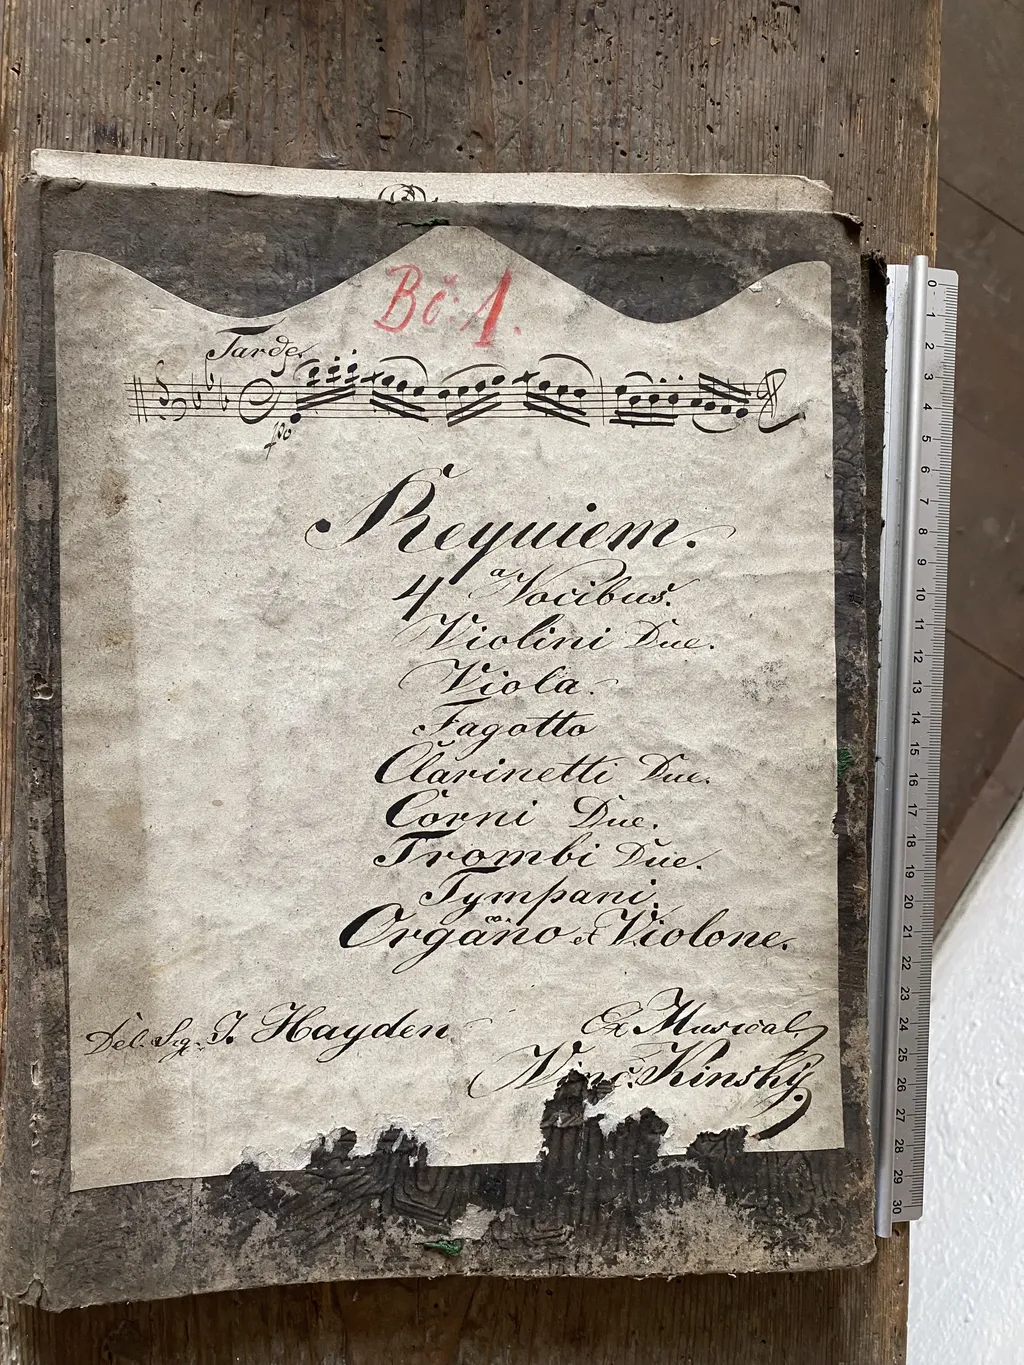 Bč: 1.
Tardo
po
Requiem.
4 a Vocibus.
Violini Due.
Viola.
Fagotto
Clarinetti Due.
Corni Due.
Trombi Due.
Tympani.
Organo et Violone.
Del. Sig. J. Hayden
Ex Musical
Vinc. Kinský.
0
1
2
3
4
5
6
7
8
9
10
11
12
13
14
15
16
17
18
19
20
21
22
23
24
25
26
27
28
29
30